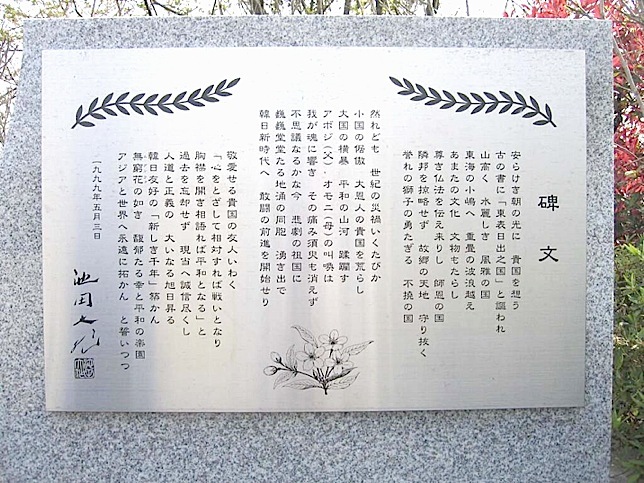 碑文
安らけき朝の光に　貴国を想う
古の書に「東表日出之国」と謳われ
山高く　水麗しき　風雅の国
東海の小嶋へ　重畳の波浪越え
あまたの文化　文物もたらし
尊き仏法を伝え来りし　師恩の国
隣邦を掠略せず　故郷の天地　守り抜く
誉れの獅子の勇たぎる　不撓の国
然れども　世紀の災禍いくたびか
小国の倨傲　大恩人の貴国を荒らし
大国の横暴　平和の山河　蹂躙す
アボジ(父)・オモニ(母)の叫喚は
我が魂に響き　その痛み須臾も消えず
不思議なるかな今　悲劇の祖国に
巍巍堂堂たる地涌の同胞　湧き出で
韓日新時代へ　敢闘の前進を開始せり
敬愛せる貴国の友人いわく
「心をとざして相対すれば戦いとなり
胸襟を開き相語れば平和となる」と
過去を忘却せず　現当へ誠信尽くし
人道と正義の　大いなる旭日昇る
韓日友好の「新しき千年」築かん
無窮花の如き　馥郁たる幸と平和の楽園
アジアと世界へ永遠に拓かん　と誓いつつ
一九九九年五月三日
池田大作